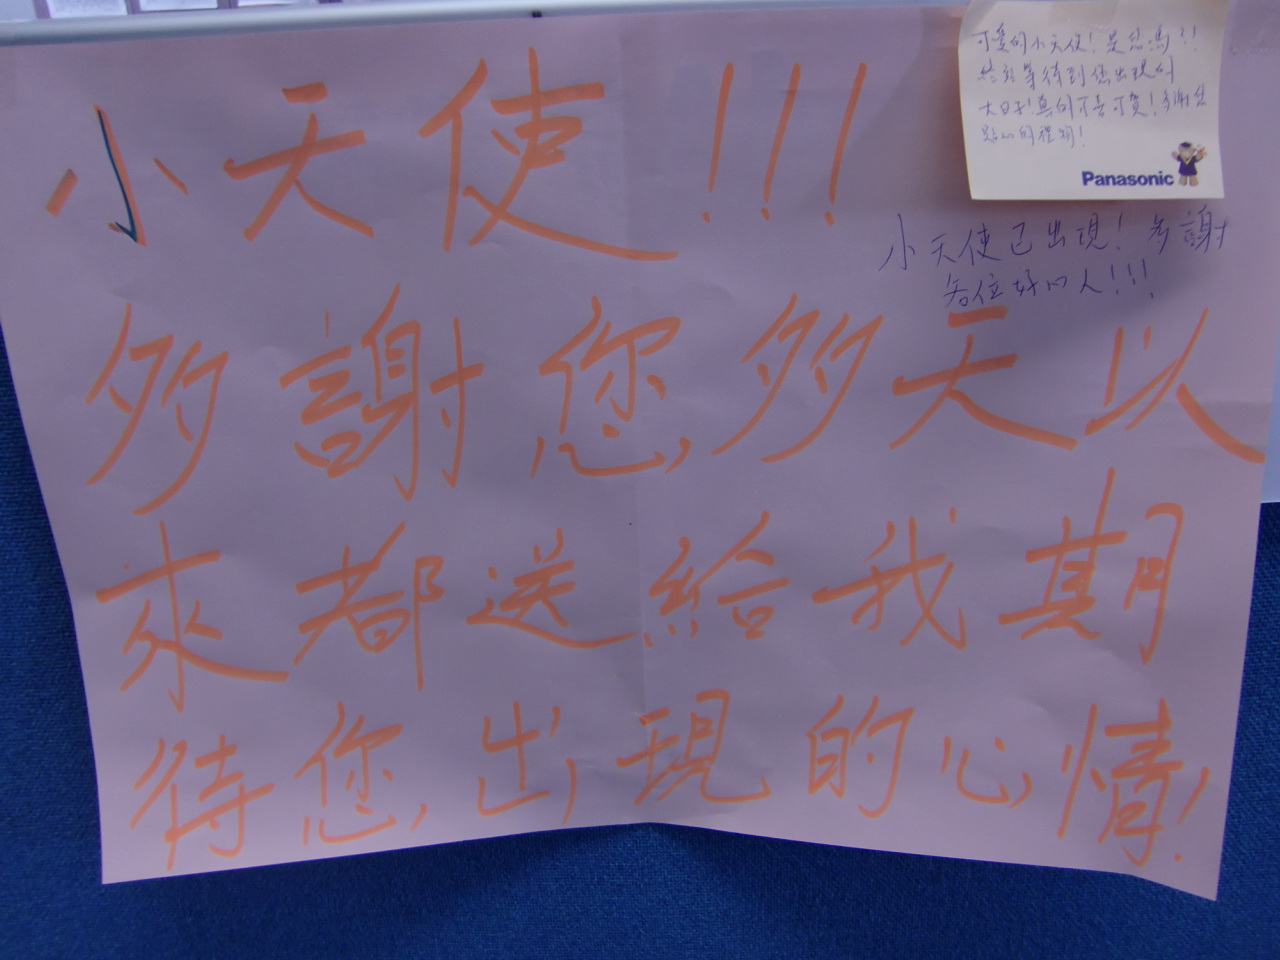 小天使!!!
多謝您多天以
來都送給我期
待您出現的心情!
可愛的小天使!是您嗎?!
終於等待到您出現的
大日子!真的可喜可賀!多謝您
點心的禮物!
Panasonic
小天使已出現!多謝
各位好心人!!!